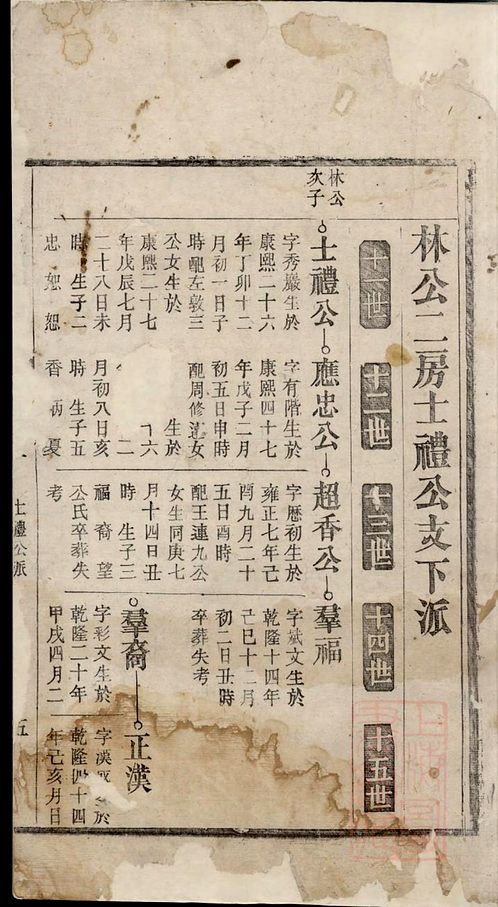 林公二房士禮公支下派
十一世
十二世
十三世
十四世
十五世
林公
次子
士禮公
應忠公
超香公
羣福
字秀巖生於
康熙二十六
年丁卯十二
月初一日子
時配左敦三
公女生於
康熙二十七
年戊辰七月
二十八日未
時 生子二
忠 恕 恕
字有階生於
康熙四十七
年戊子二月
初五日申時
配周修達女
生於
六
二
月初八日亥
時 生子五
香
字歷初生於
雍正七年己
酉九月二十
五日酉時
配王連九公
女生同庚七
月十四日丑
時 生子三
福 裔 望
公氏卒葬失
考
字斌文生於
乾隆十四年
己巳十二月
初二日丑時
卒葬失考
羣裔
字彩文生於
乾隆二十年
甲戌四月二
正漢
字漢 於
乾隆四十四
年己亥月日
士禮公派
五